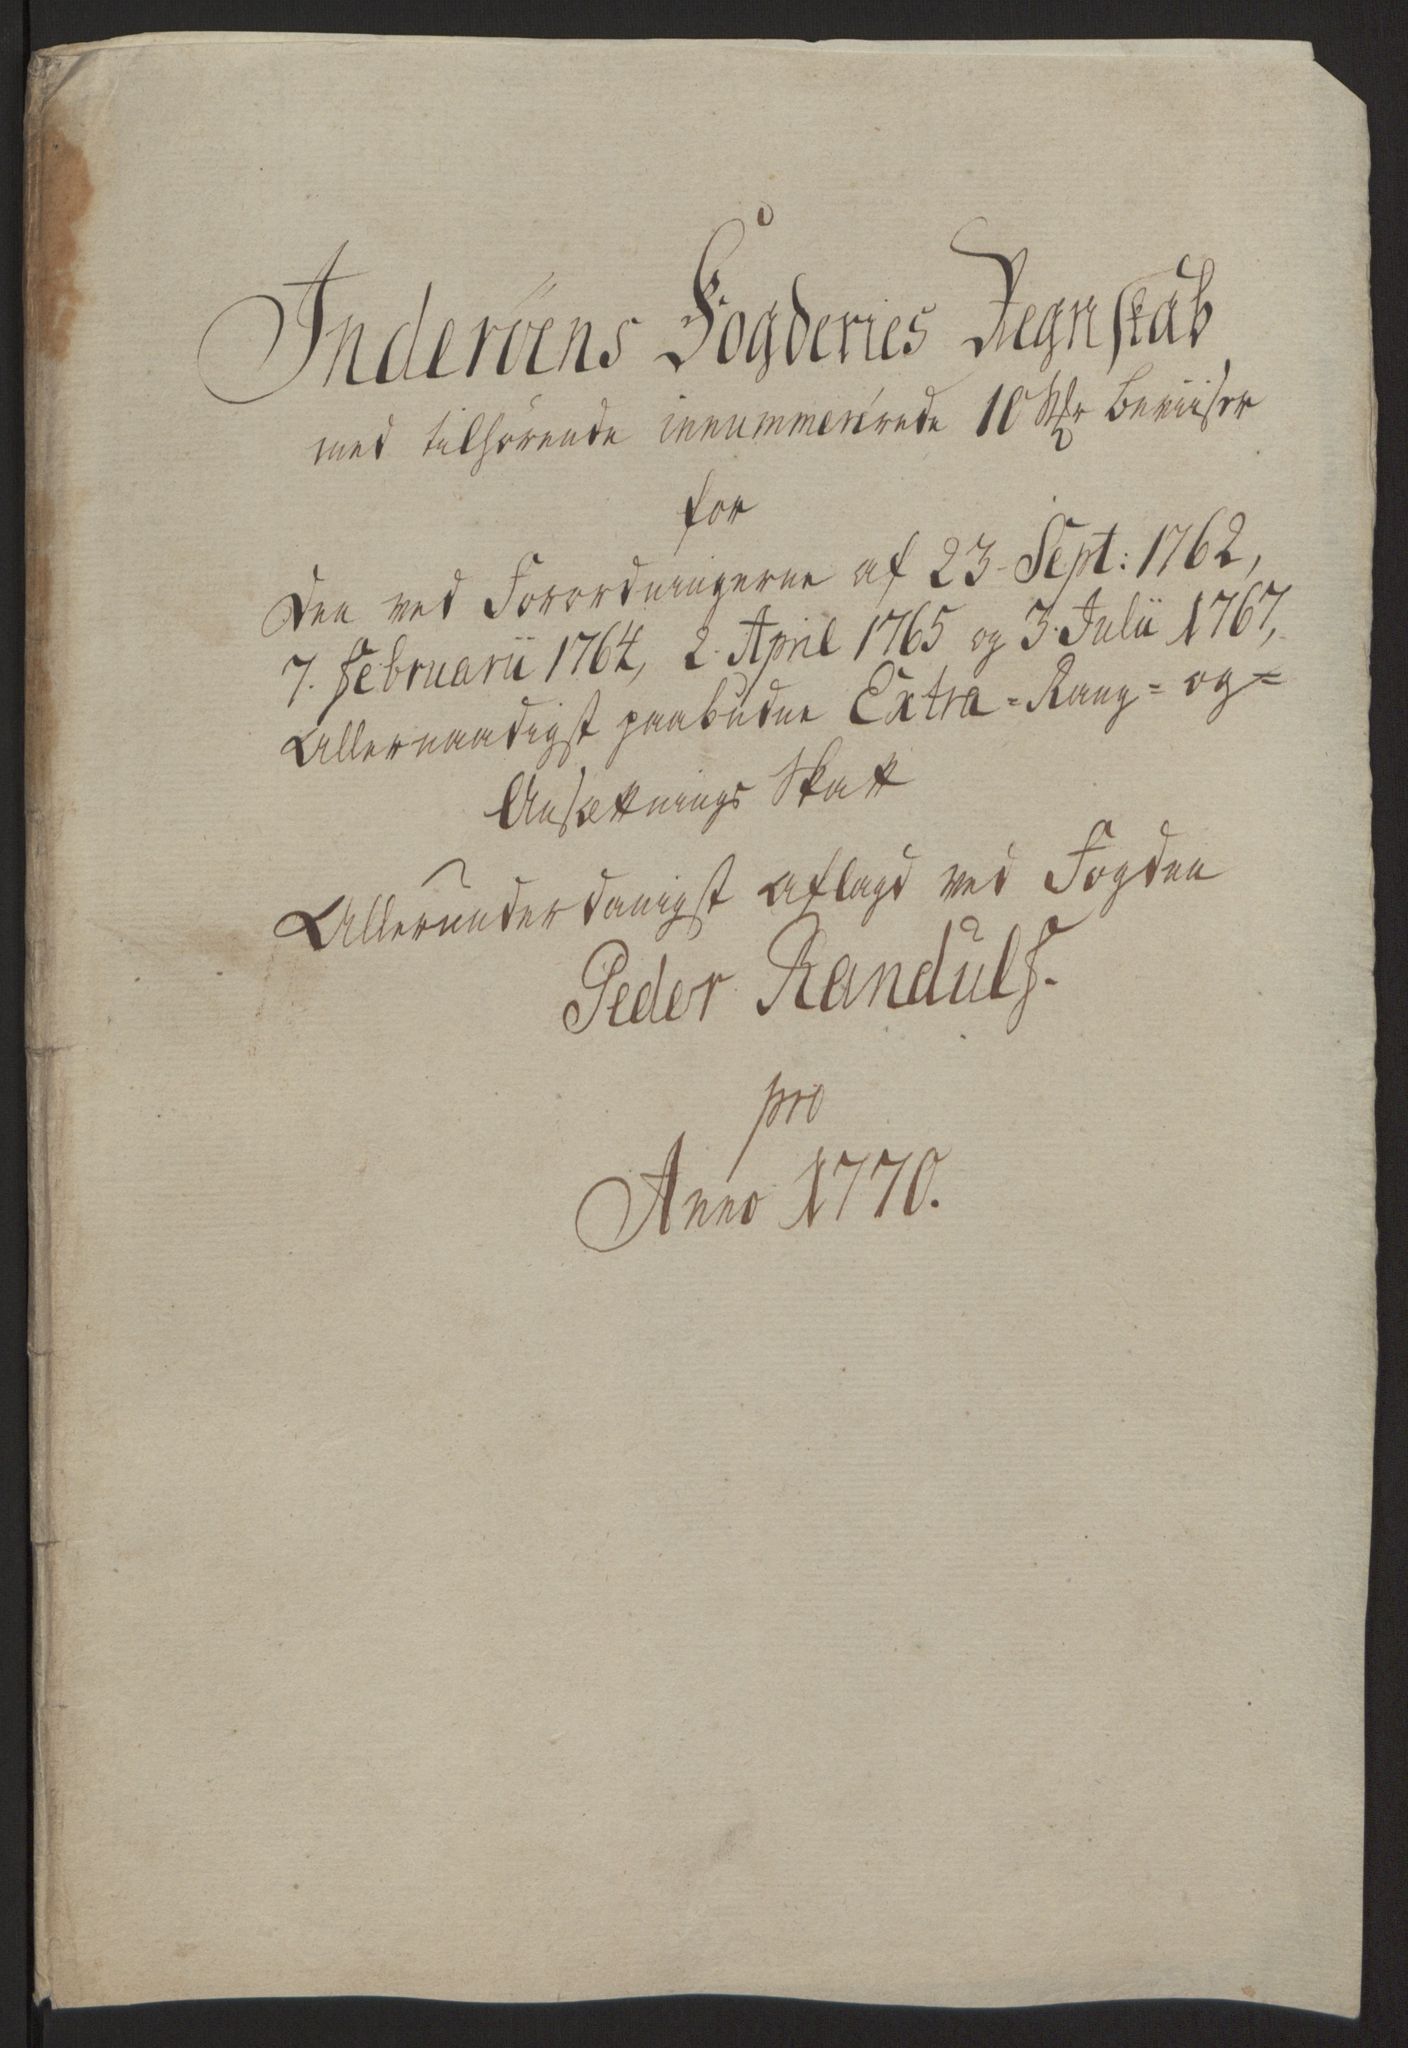 Inderöens Fogderies Regnskab
med tilhørende innummererede 10 Stk: beviiser
for
Den ved Forordningerne af 23. Sept: 1762,
7. Februarii 1764, 2. April 1765 og 3. Julii 1767,
Allernaadigst paabudne Extra = Rang = og =
Ansættnings Skatt
Allerunderdanigst aflagd ved Fogden
Peder Randulf.
pro
Anno 1770.